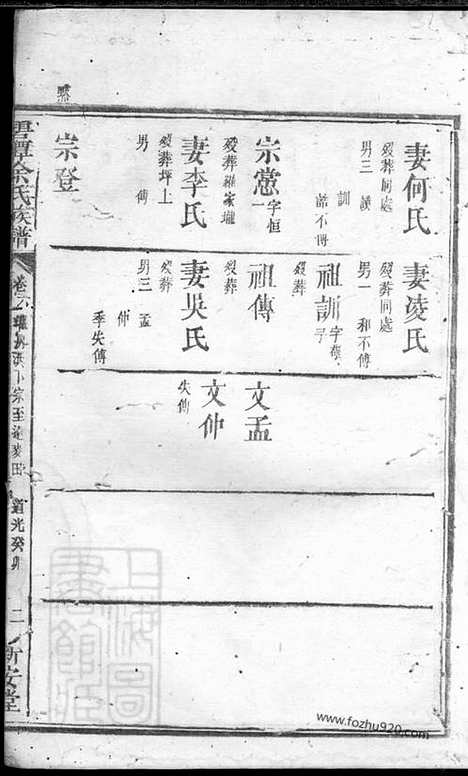 妻何氏
歿葬同處
男三 謨
訓
諦不傳
宗憲
字恒一
歿葬羅家壠
妻李氏
歿葬坪上
男 傳
宗登
妻凌氏
歿葬同處
男一 和不傳
祖訓
歿葬
祖傳
歿葬
妻吳氏
歿葬
男三 孟
仲
季失傳
文孟
文仲
失傳
余氏族譜
道光癸卯
二
新安堂
上海圖書館藏
www.fozhu920.com